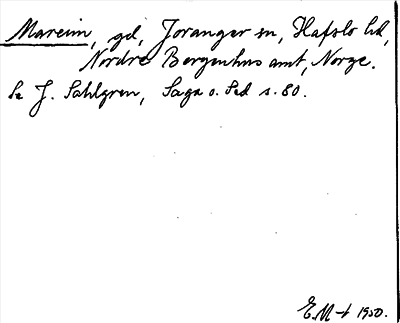 Mareim, gd, Joranger sn, Hafslo hd,
Nordre Bergenhus amt, Norge.
Se J. Sahlgren, Saga o. Sed s. 80.
E.M-t 1950.